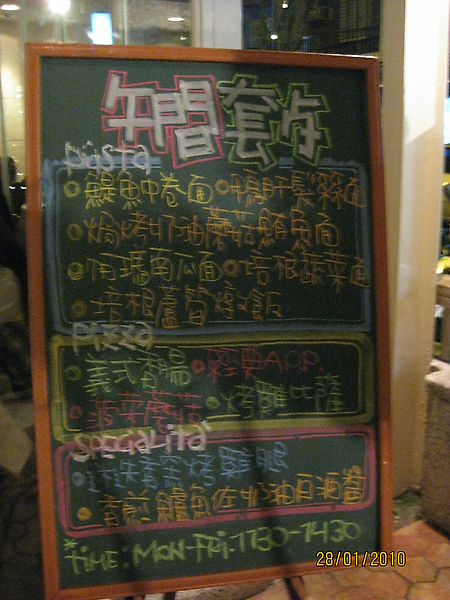 午間套餐
Pasta
鯷魚中卷面 鴨肝髮絲面
焗烤奶油蘑菇鮪魚面
佰瑪南瓜面 培根蔬菜面
培根蘆筍燉飯
Pizza
美式香腸 經典A.O.P.
菠菜蘑菇 烤雞比薩
Specialita'
迷迭香煎烤雞腿
香煎鱸魚佐奶油白酒醬
*TIME: MON-FRI. 1130-1430
28/01/2010